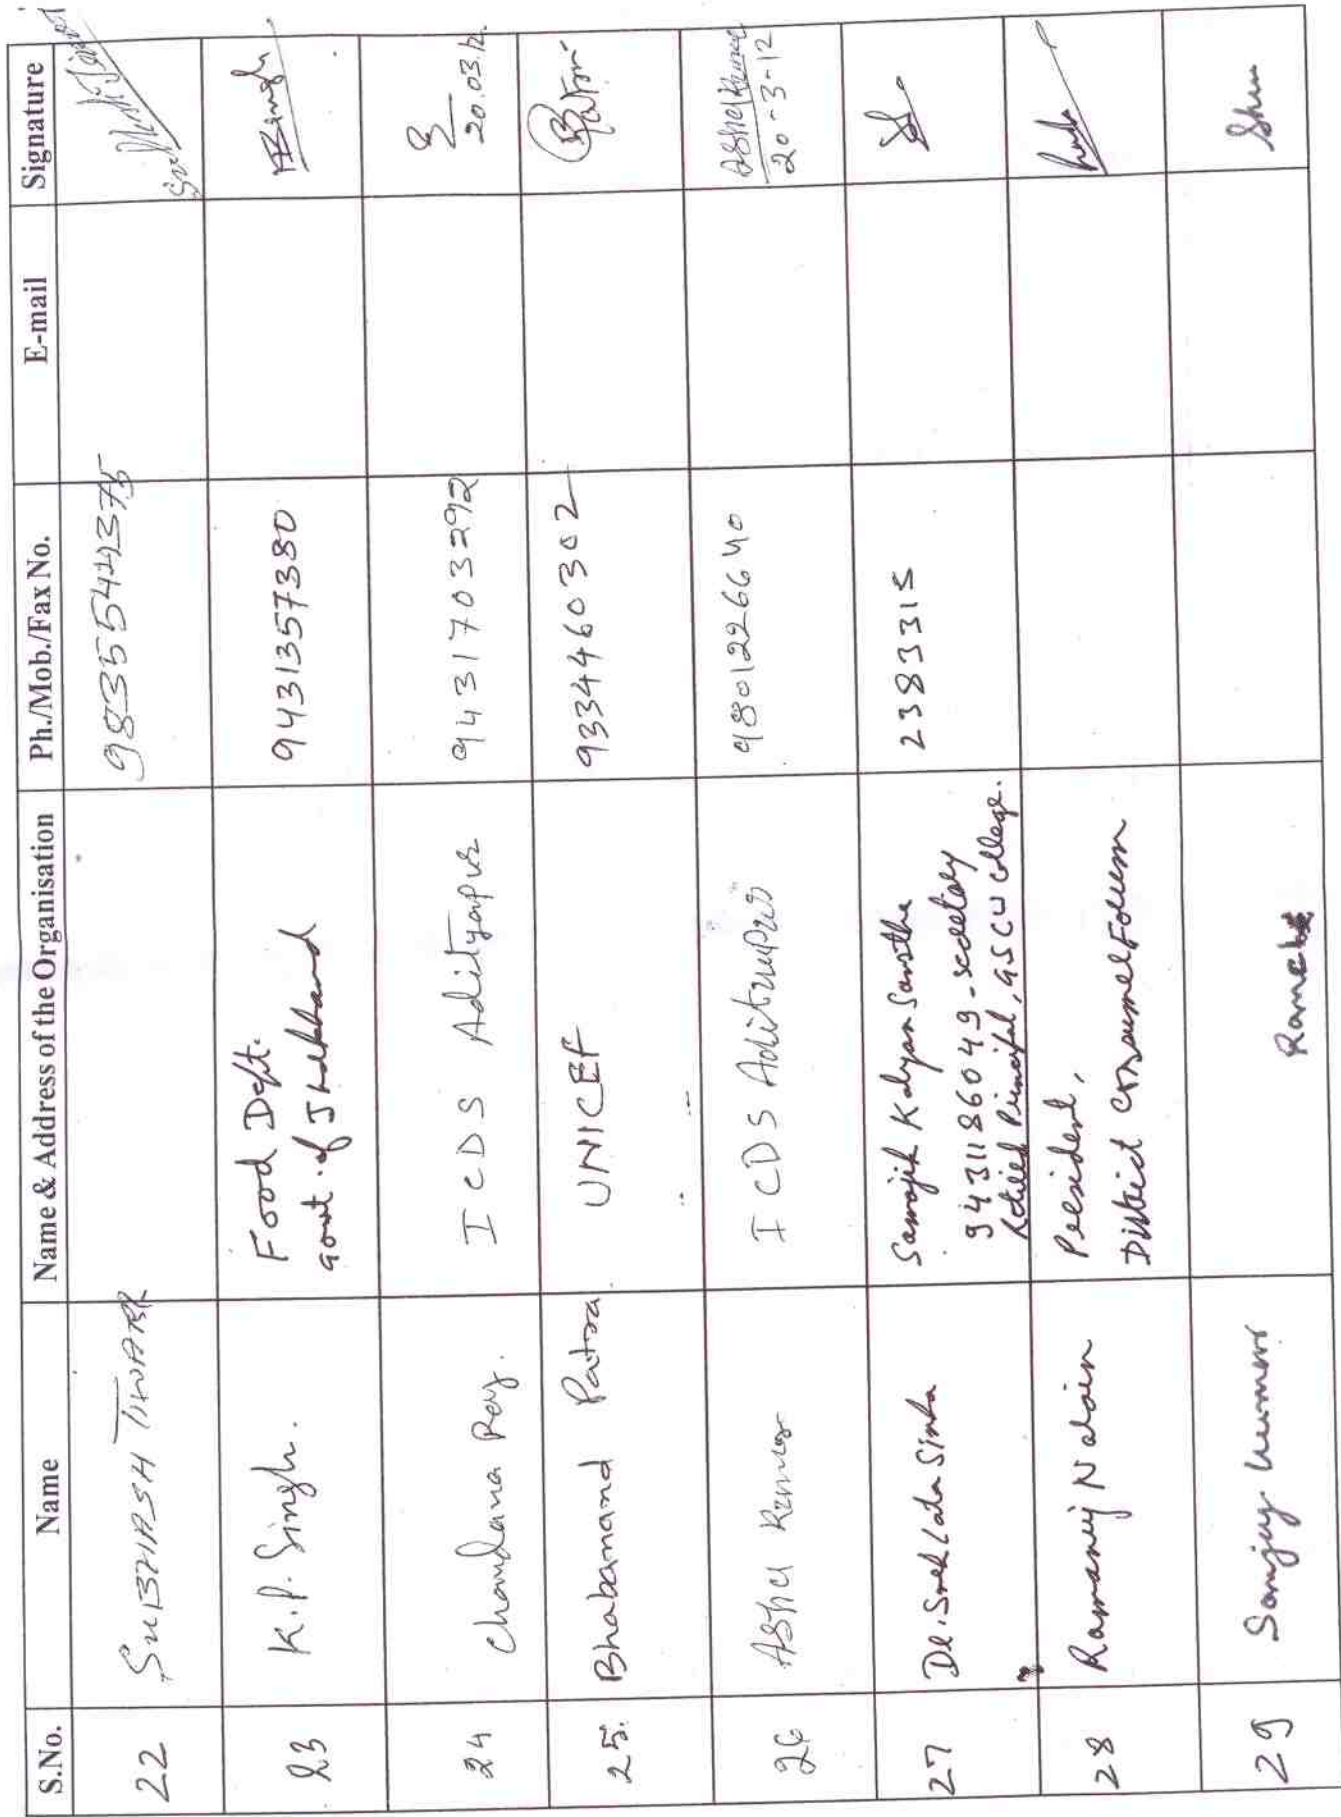 S.No. Name Name & Address of the Organisation Ph./Mob./Fax No. E-mail Signature
22 SUBHASH TIWARI 9835544375
23 K.P. Singh. Food Dept. 9431357380
Govt. of Jharkhand
24 Chandana Roy. ICDS Adityapur 9431703292
20.03.12
25. Bhabanand Patra UNICEF 9334460302
26 ASHA Kumar ICDS Aditupur 9801226640
20-3-12
27 Dr. Sneh Lata Sinha Samajik Kalyan Sanstha 2383315
9431186049 - Secretary
Retired Principal, GSCW College.
28 Ramanuj Narain President,
District Consumer Forum
29 Sanjay Kumar Ranchi